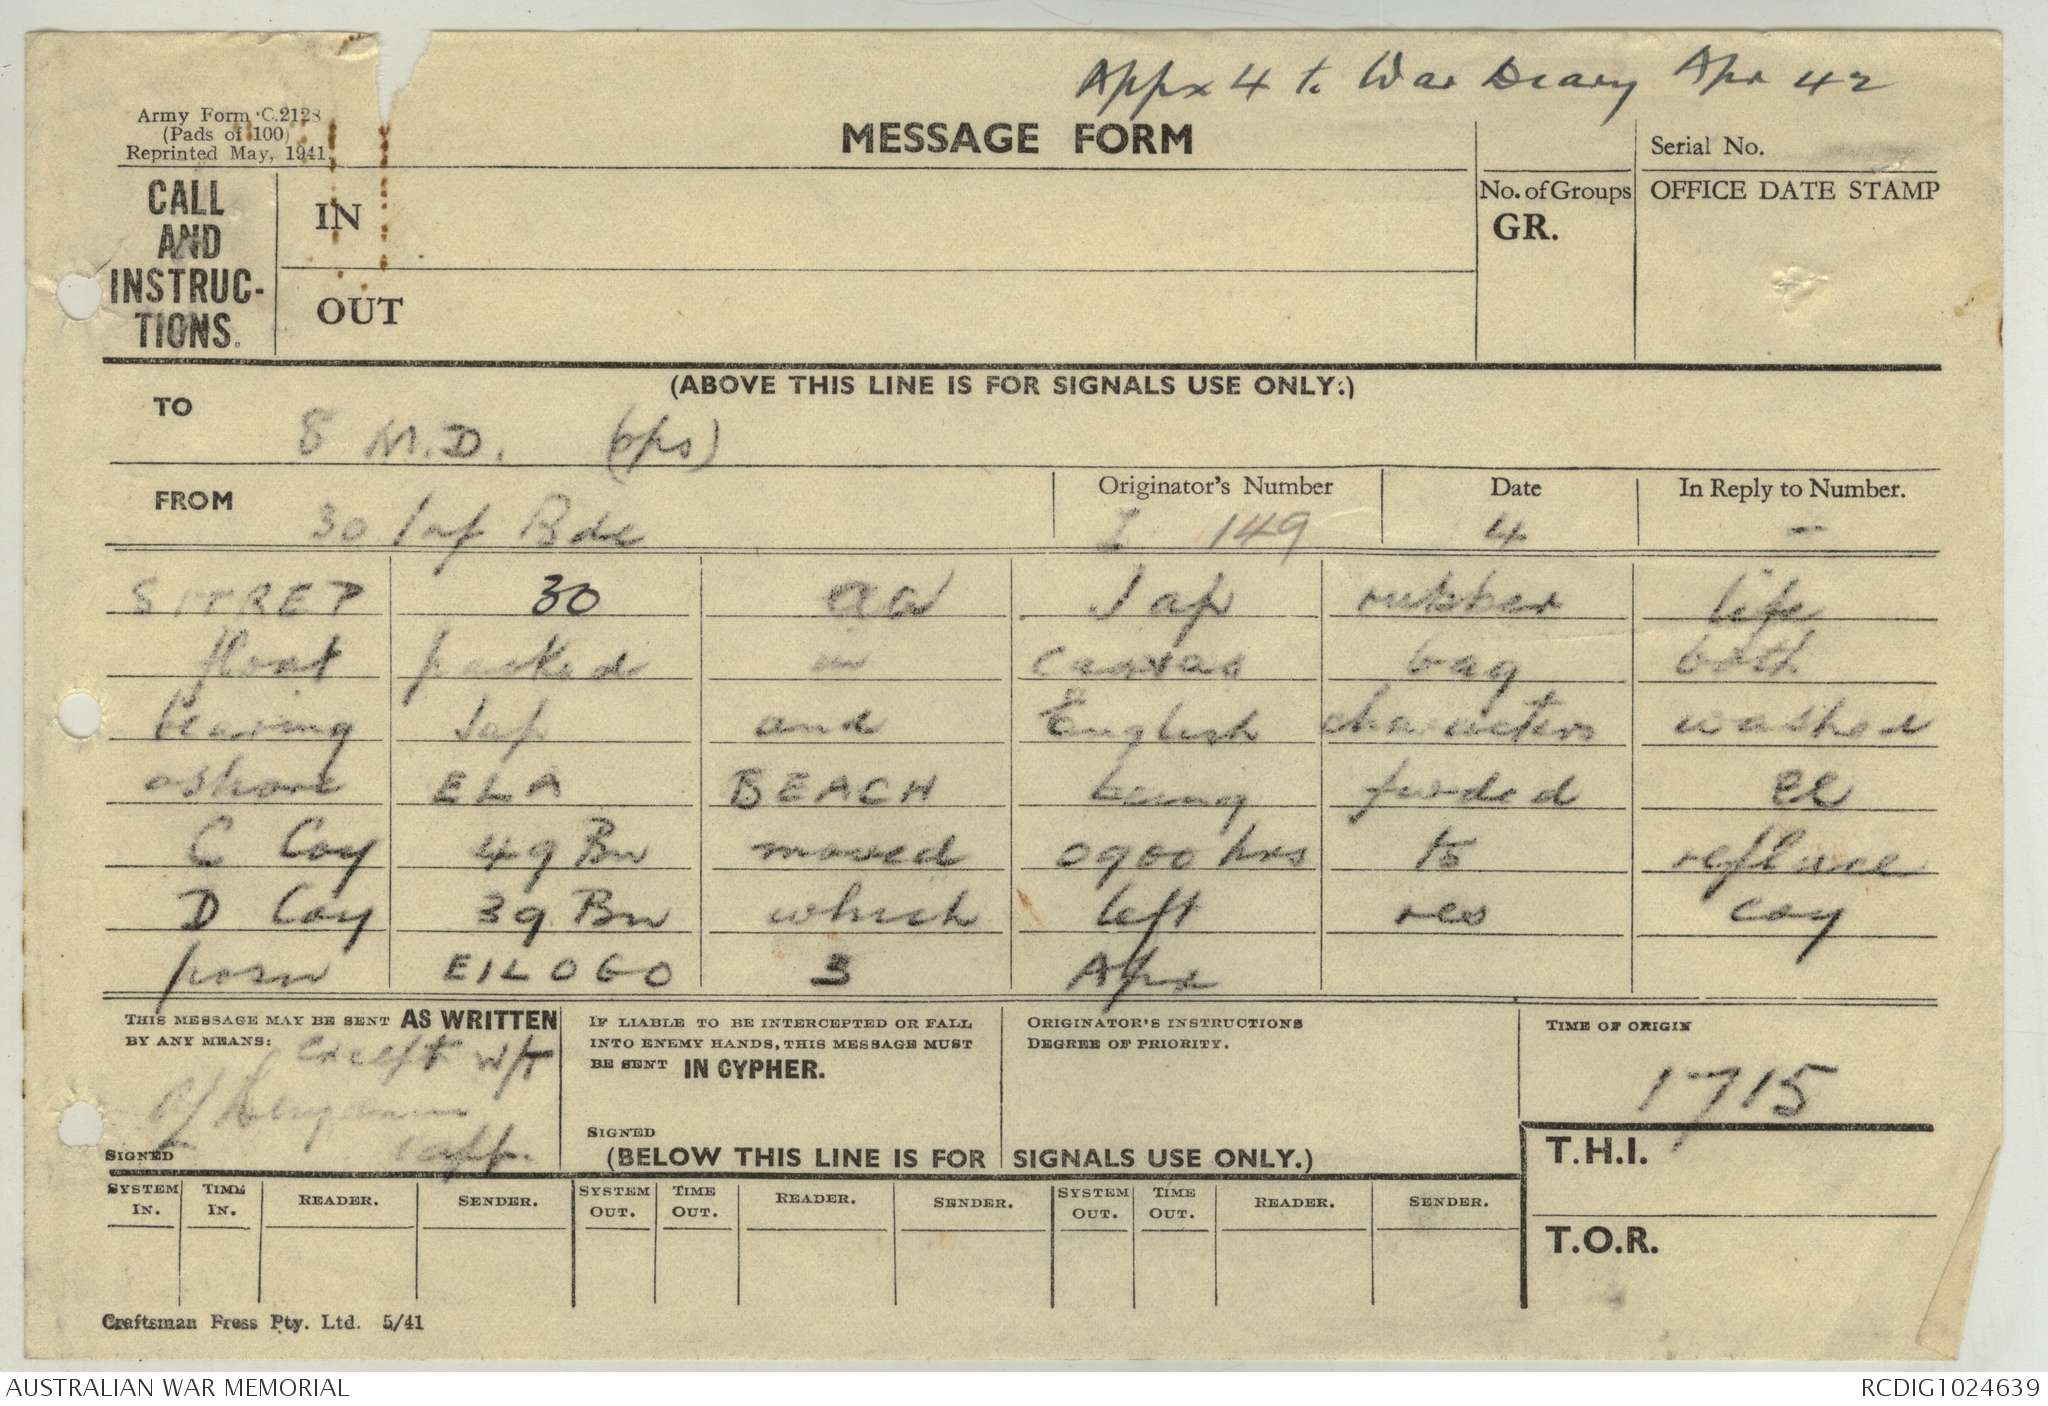 Appx 4 to War Diary Apr 42
Army Form C.2128
(Pads of 100)
Reprinted May, 1941.
MESSAGE FORM
Serial No.
CALL
AND
INSTRUC-
TIONS.
IN
OUT
No. of Groups
GR.
OFFICE DATE STAMP
(ABOVE THIS LINE IS FOR SIGNALS USE ONLY.)
TO
8 M.D. (ops)
FROM
30 Inf Bde
Originator's Number
I 149
Date
4
In Reply to Number.
—
SITREP 30 aa Jap rubber life
float packed in canvas bag both
bearing Jap and English characters washed
ashore ELA BEACH being fwded
C Coy 49 Bn moved 0900 hrs to replace
D Coy 39 Bn which left res coy
posn EILOGO 3 Apr
THIS MESSAGE MAY BE SENT AS WRITTEN
BY ANY MEANS:
except W/T
Capt.
SIGNED
IF LIABLE TO BE INTERCEPTED OR FALL
INTO ENEMY HANDS, THIS MESSAGE MUST
BE SENT IN CYPHER.
SIGNED
ORIGINATOR'S INSTRUCTIONS
DEGREE OF PRIORITY.
TIME OF ORIGIN
1715
T.H.I.
T.O.R.
(BELOW THIS LINE IS FOR SIGNALS USE ONLY.)
SYSTEM IN. TIME IN. READER. SENDER. SYSTEM OUT. TIME OUT. READER. SENDER. SYSTEM OUT. TIME OUT. READER. SENDER.
Craftsman Press Pty. Ltd. 5/41
AUSTRALIAN WAR MEMORIAL
RCDIG1024639